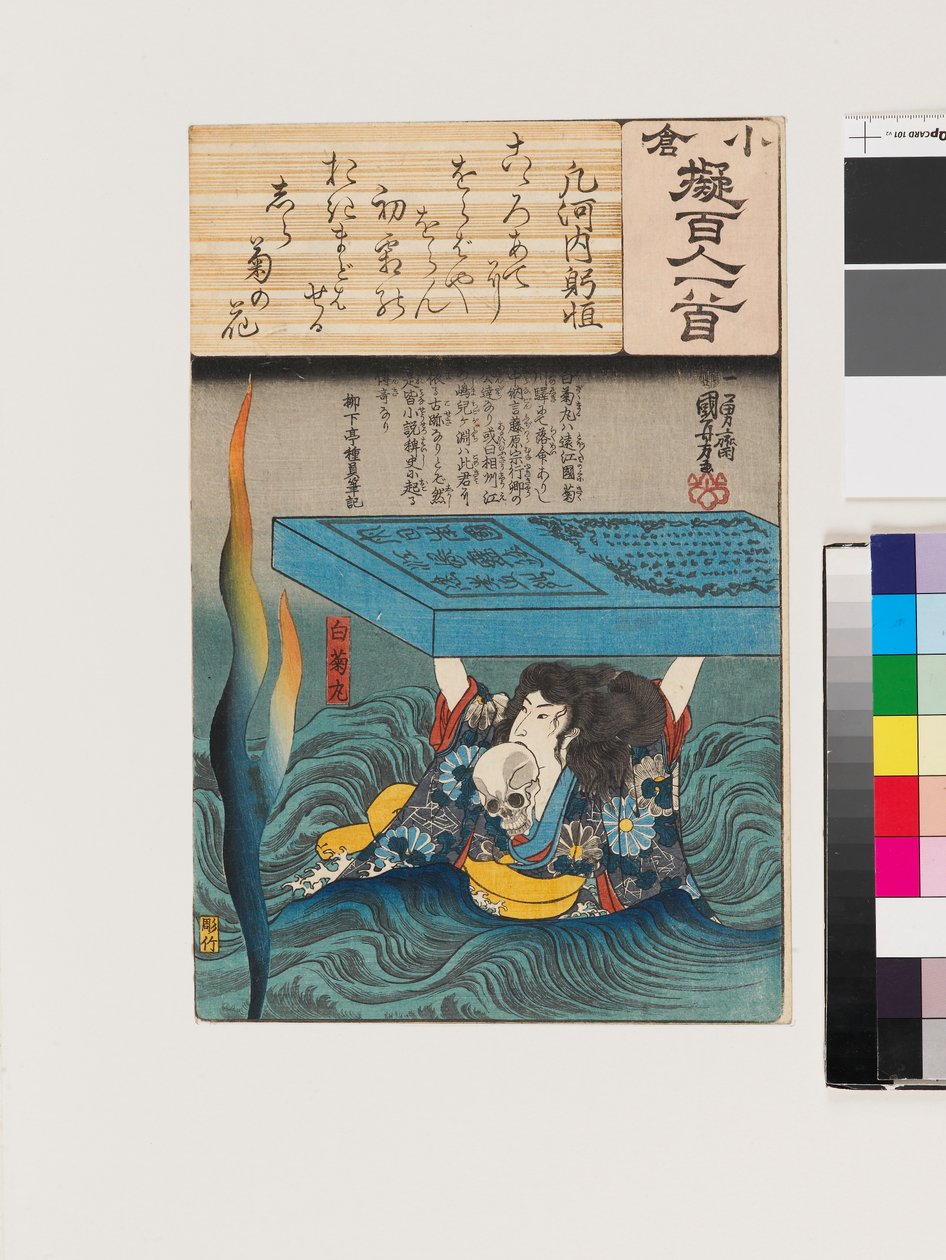 小倉
擬百人一首
凡河内躬恒
こゝろあてに
をらばや
をらん
初霜の
おきまどはせる
しら
菊の
花
一勇齋
國芳画
白菊丸ハ遠江國菊
川驛にて落命ありし
中納言藤原宗行卿の
公達なり或曰相州江
の嶋兒ヶ淵ハ此君に
依る古跡なりとぞ然
是皆小説稗史に起る
傳奇なり
柳下亭種員筆記
白菊丸
彫竹
pCARD 101 v2